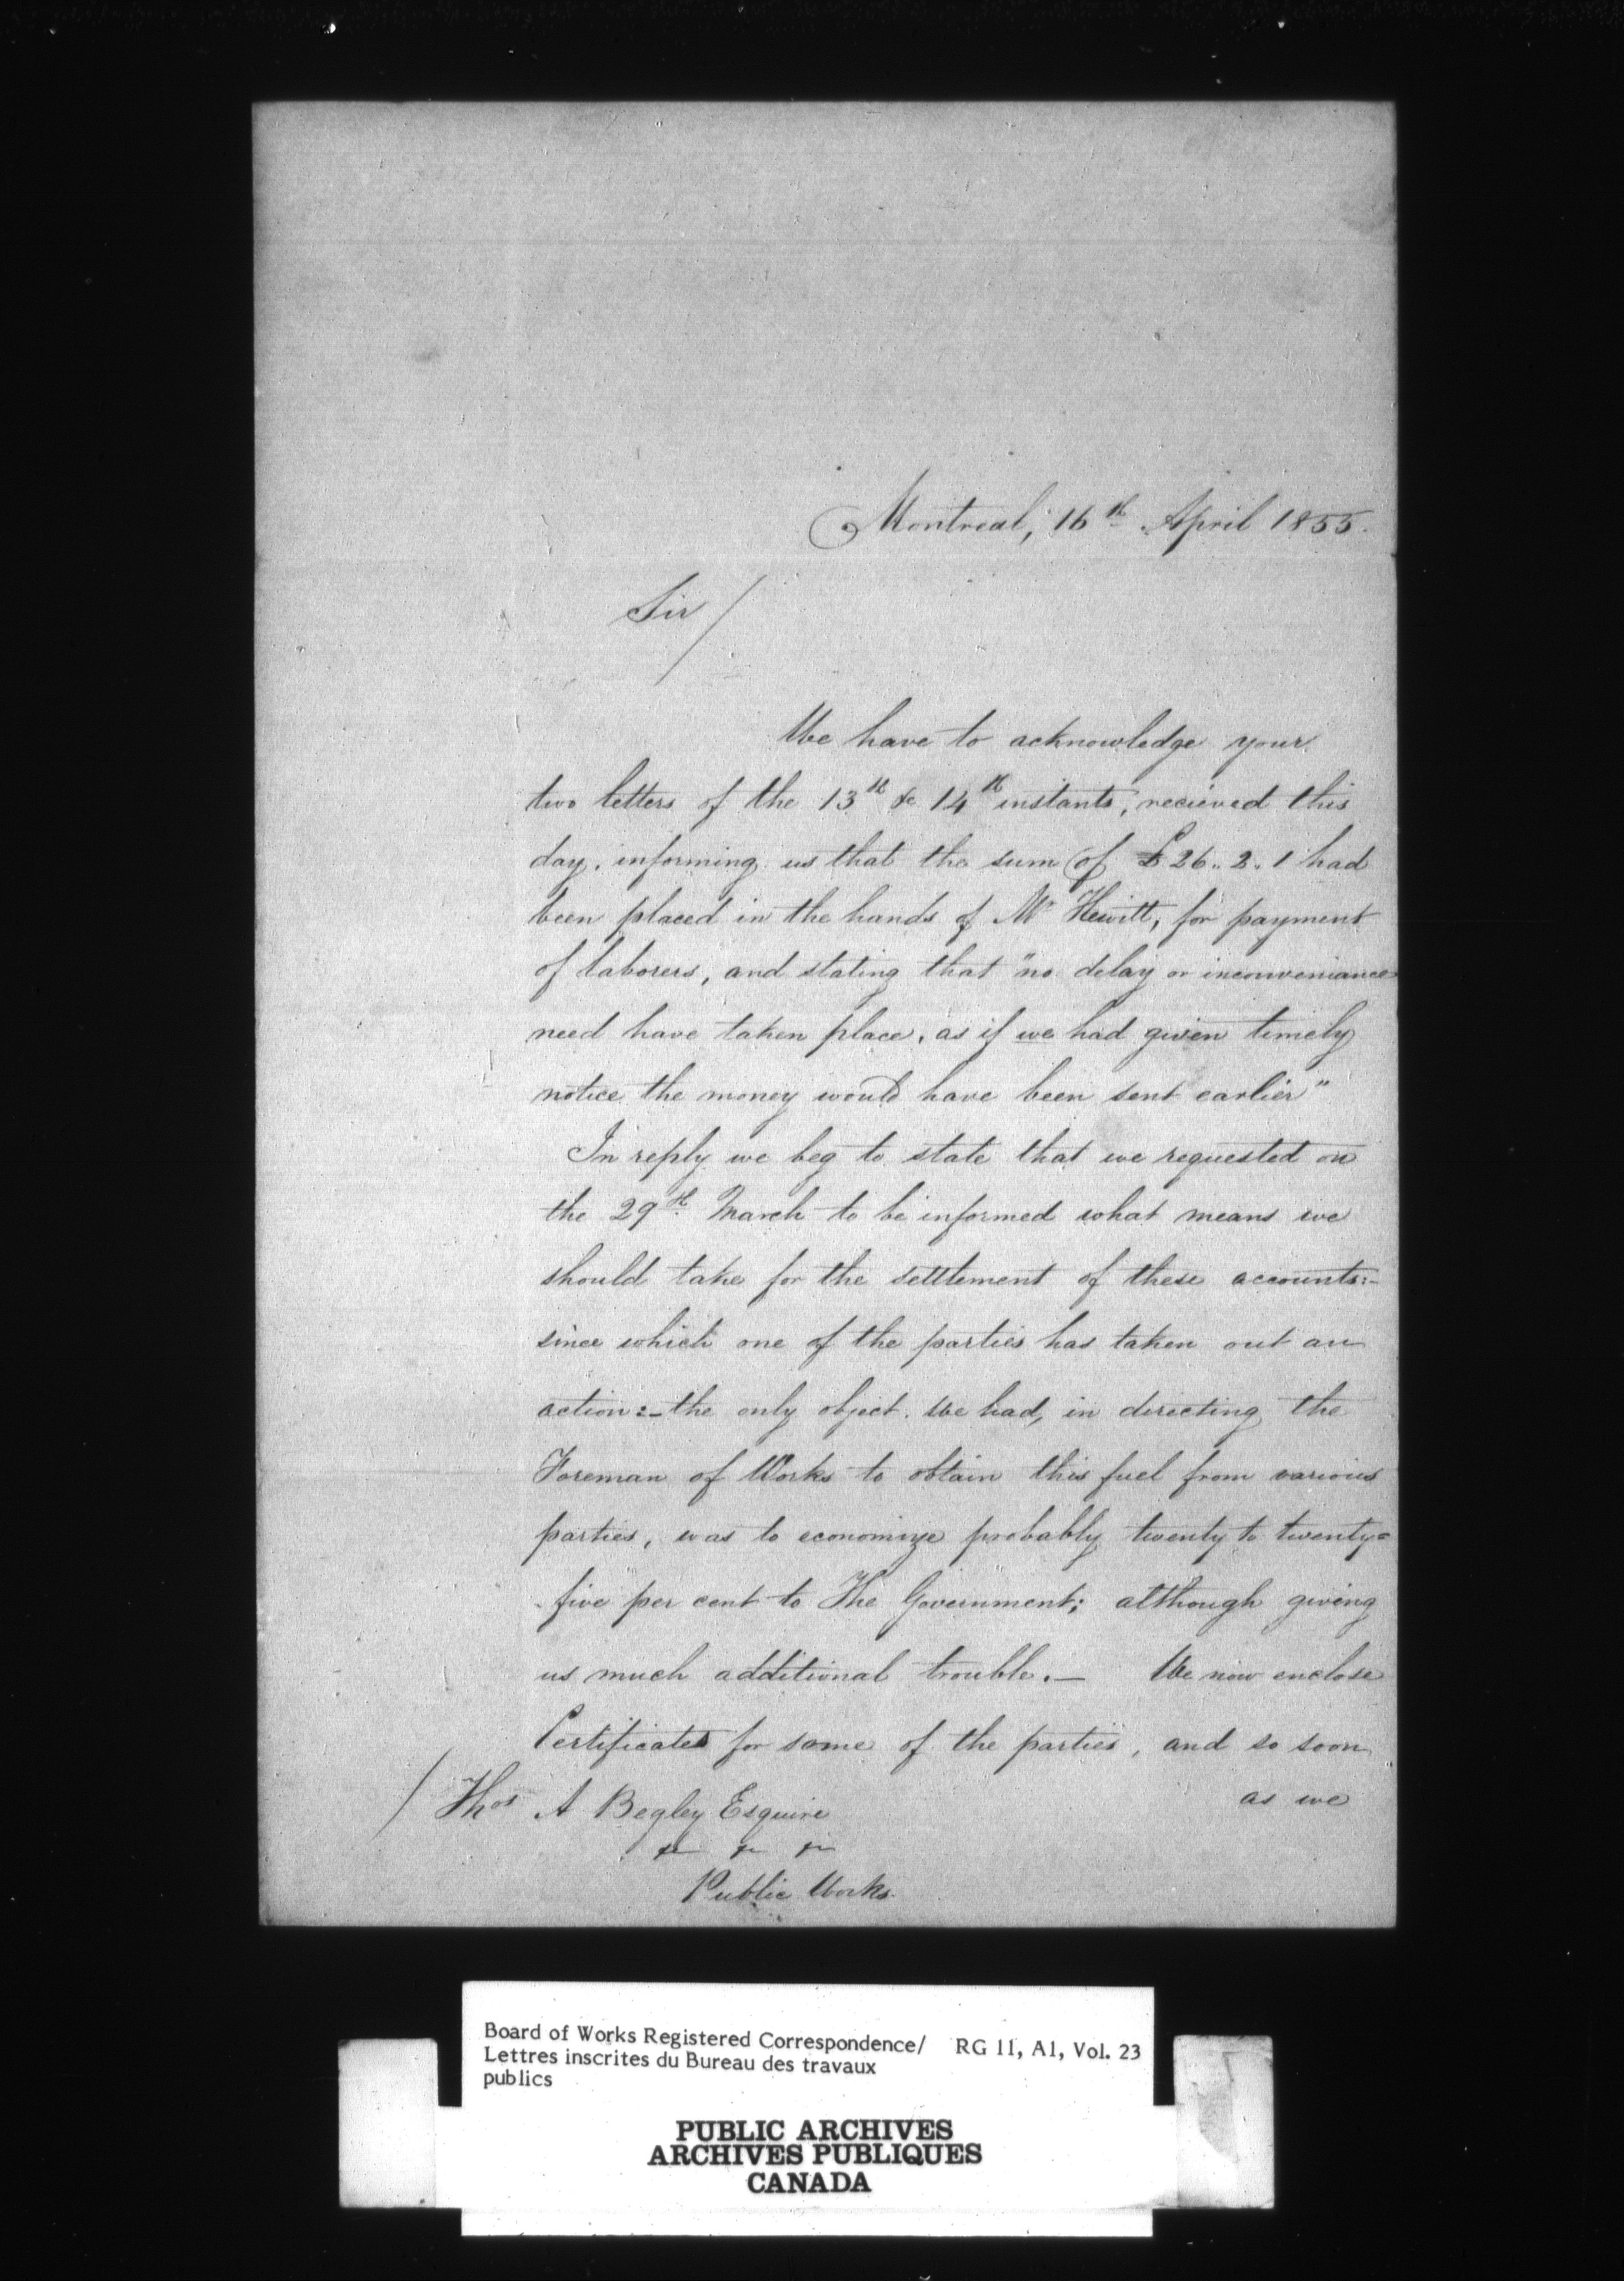 Montreal, 16th April 1855.
Sir/
We have to acknowledge your
two letters of the 13th & 14th instants, recieved this
day, informing us that the sum of £26..2..1 had
been placed in the hands of Mr Hewitt, for payment
of laborers, and stating that "no delay or inconveniance
need have taken place, as if we had given timely
notice the money would have been sent earlier"
In reply we beg to state that we requested on
the 29th March to be informed what means we
should take for the settlement of these accounts:-
since which one of the parties has taken out an
action:- the only object we had, in directing the
Foreman of Works to obtain this fuel from various
parties, was to economize probably twenty to twenty=
five per cent to The Government; although giving
us much additional trouble.— We now enclose
Certificates for some of the parties, and so soon
as we
/ Thos A Begley Esquire
& & &
Public Works.
Board of Works Registered Correspondence/ RG 11, A1, Vol. 23
Lettres inscrites du Bureau des travaux
publics
PUBLIC ARCHIVES
ARCHIVES PUBLIQUES
CANADA